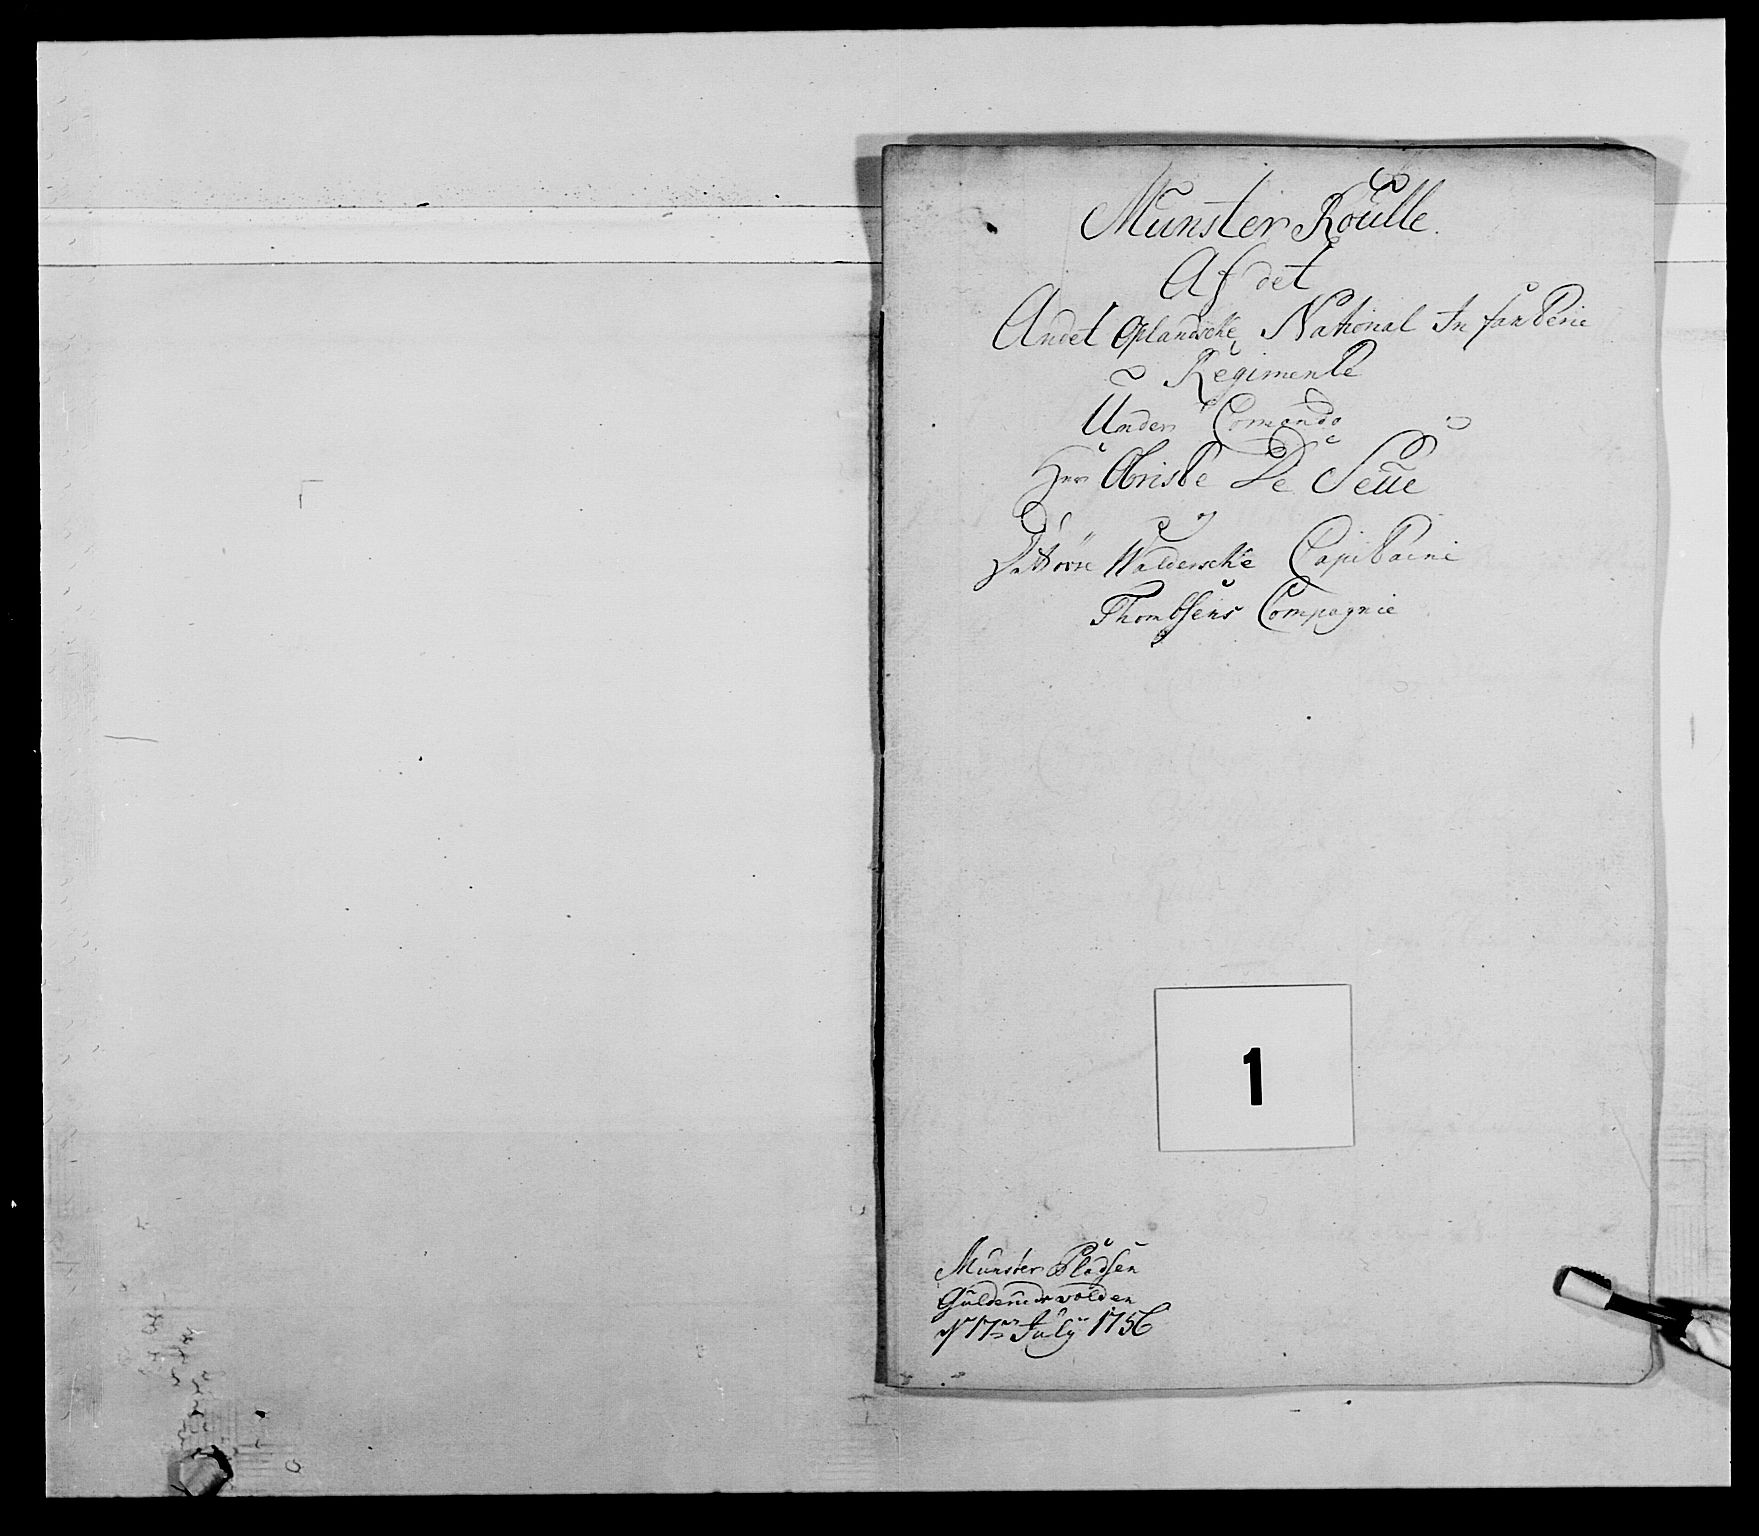 Munster Roulle.
Af det
Andet Oplandske National Infanterie
Regimente
Under Comando
Herr Obriste De Seüe
Walderske Capitaine
Thombsens Compagnie
1
Munster Pladsen
d 17de July 1756